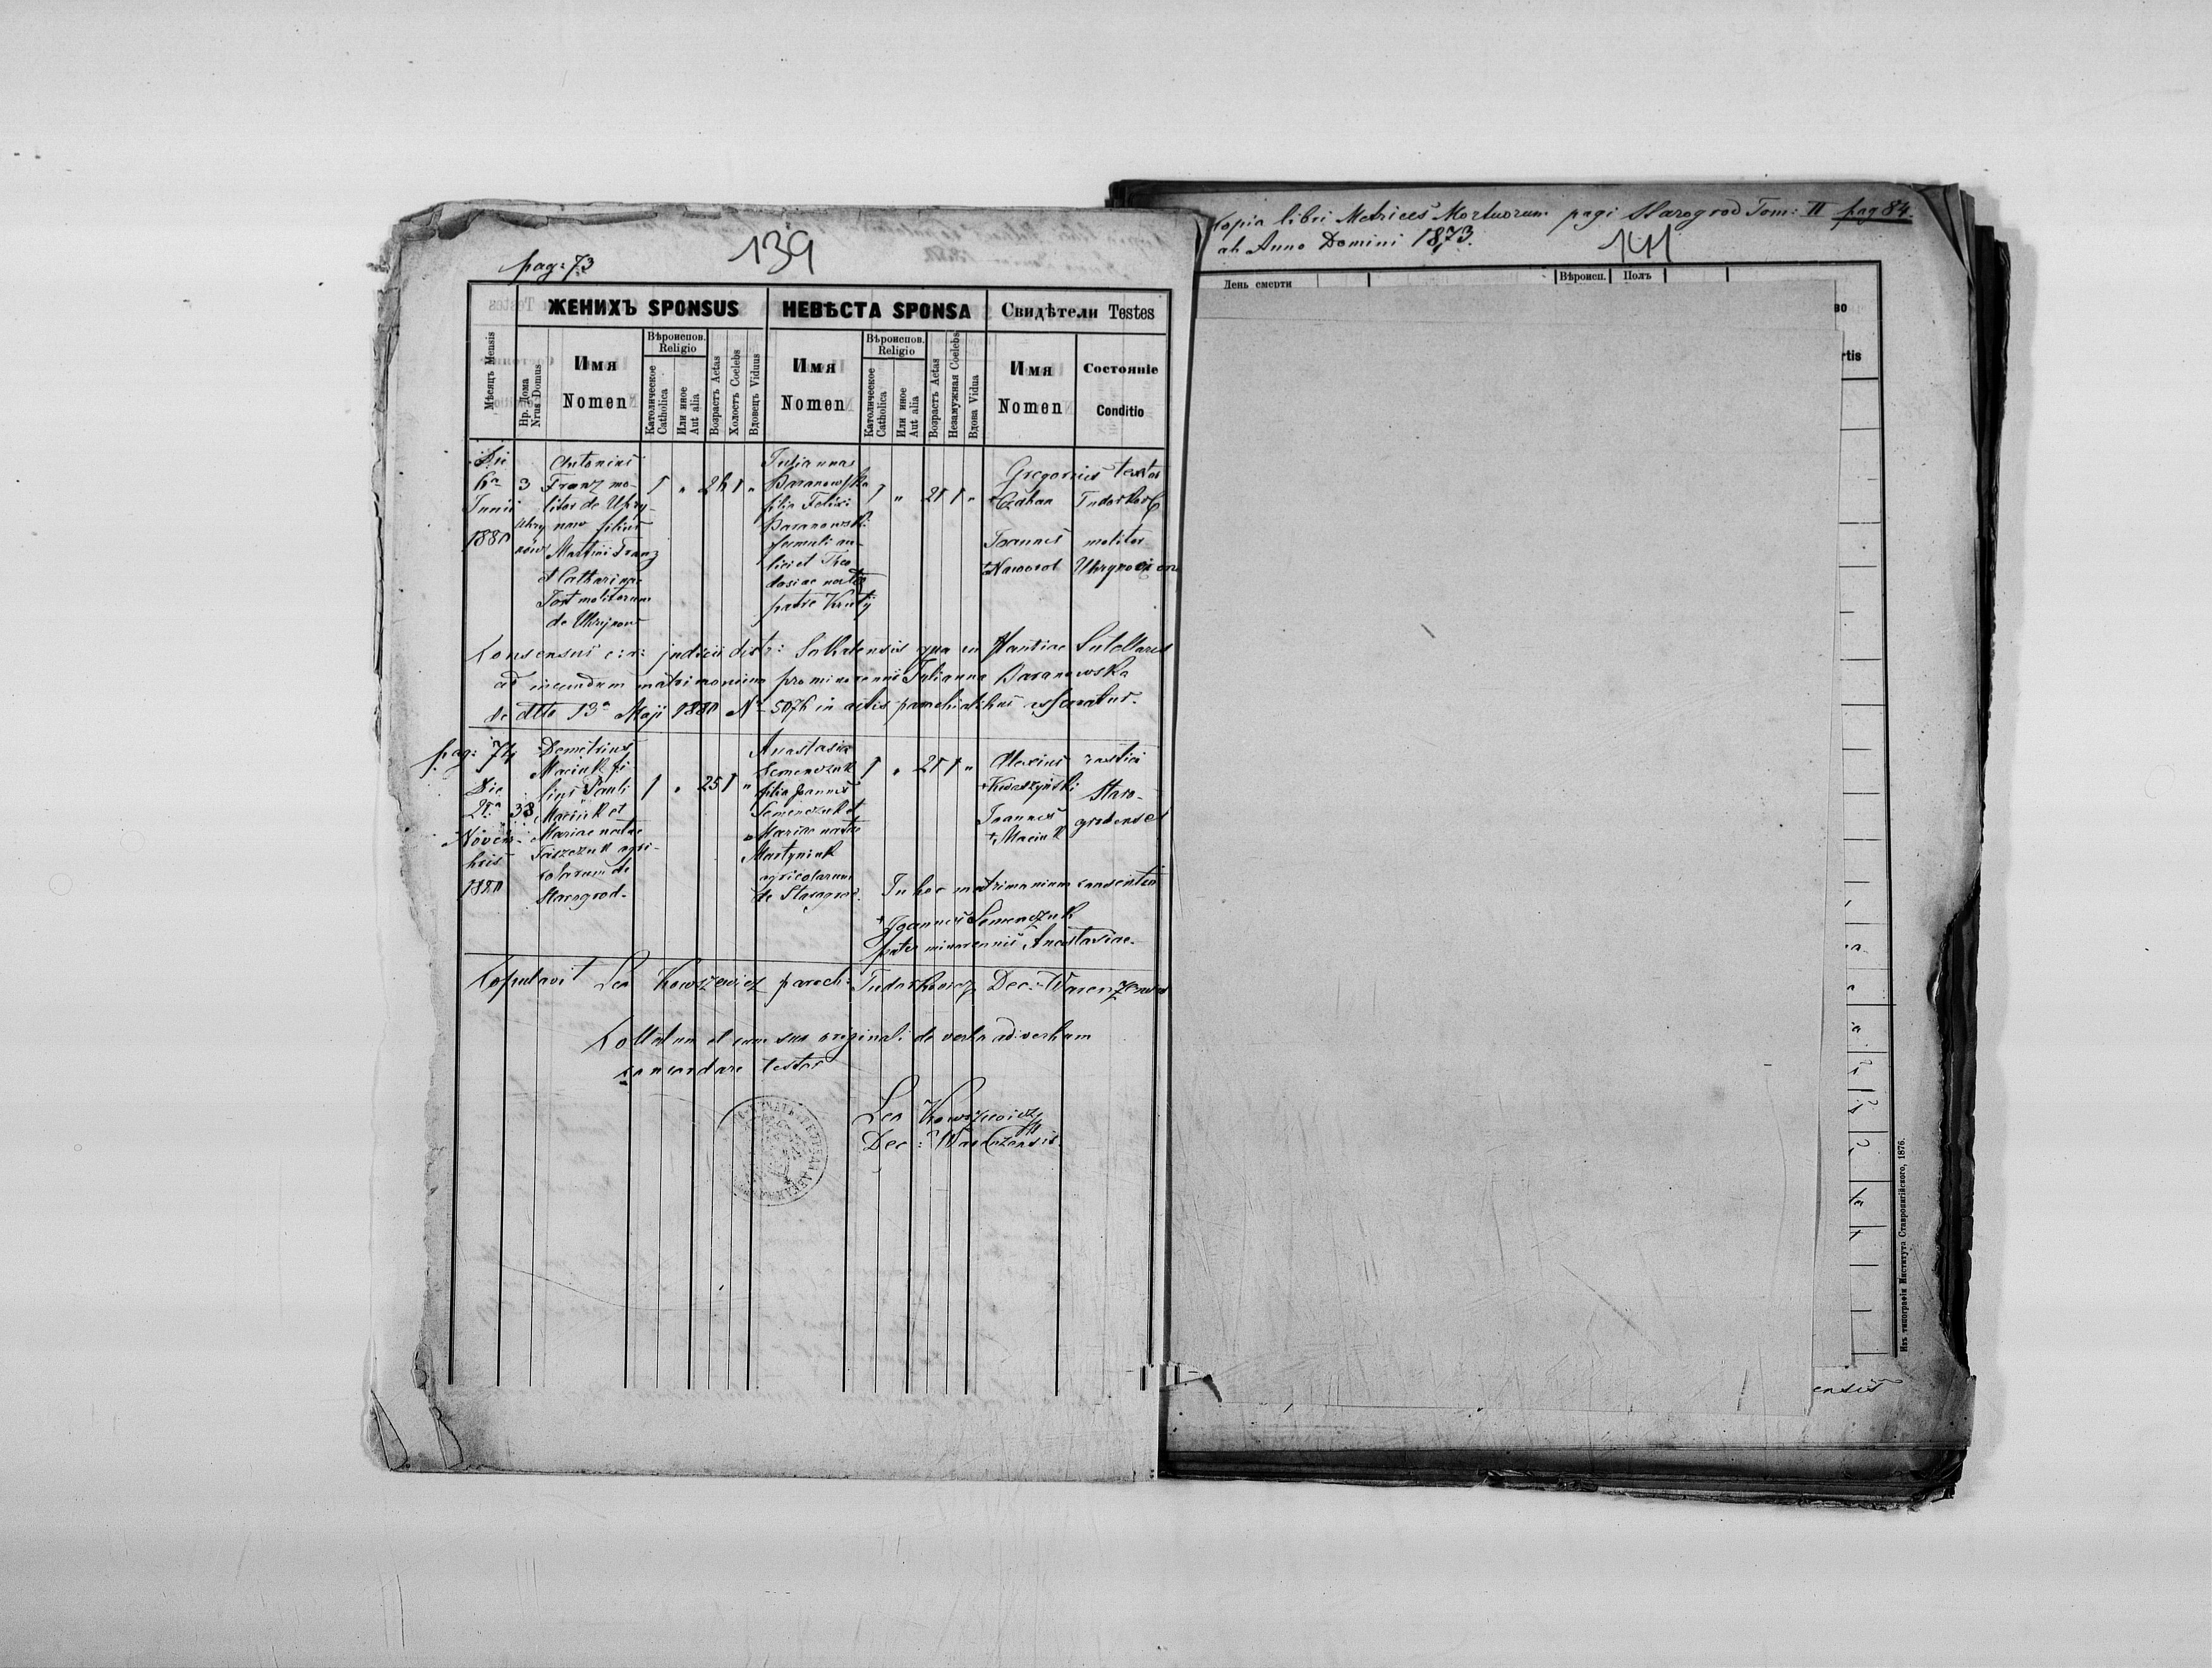 pag: 73
139
ЖЕНИХЪ SPONSUS
НЕВѢСТА SPONSA
Свидѣтели Testes
Мѣсяцъ Mensis
Нр. Дома
Nrus Domus
Имя
Nomen
Вѣроиспов.
Religio
Католическое
Catholica
Или иное
Aut alia
Возрастъ Aetas
Холостъ Coelebs
Вдовецъ Viduus
Имя
Nomen
Вѣроиспов.
Religio
Католическое
Catholica
Или иное
Aut alia
Возрастъ Aetas
Незамужная Coelebs
Вдова Vidua
Имя
Nomen
Состояніе
Conditio
Die
6ª
Junii
1880
3
Uhry
nów
Antonius
Franz mo-
litor de Uhry-
now filius
Martini Franz
et Catharinae
Jost molitorum
de Uhrynow
1 " 24 1 "
Julianna
Baranowska
filia Felixi
Baranowski
famuli au-
lici et Theo
dosiae natae
patre Kruty
1 " 21 1 "
Gregorius
+Cahan
Joannes
+Naworol
textor
Tudorkow
molitor
Uhrynov
Consensus c: r: judicii distr: Sokalensis qua in stantiae Tutellares
ad ineundum matrimonium pro minorenni Julianna Baranowska
de dtto 13ª Maji 1880 Nº 5076 in actis parochialibus asservatur.
pag: 74
Die
21ª
Novem-
bris
1880
38
Demetrius
Maciuk fi
lius Pauli
Maciuk et
Mariae natae
Taszczuk agri-
colarum de
Starogrod.
1 " 25 1 "
Anastasia
Semenczuk
filia Joannis
Semenczuk et
Mariae natae
Martyniuk
agricolarum
de Starogrod.
1 " 21 1 "
Alexius
+Kwaszyński
Joannes
+Maciuk
rustici
Staro-
grodenses
In hoc matrimonium consentio
+Joannes Semenczuk
pater minorennis Anastasiae.
Copulavit Leo Kowszewicz paroch: Tudorkowic Dec: Warenzensis
Collatum et cum suo originali de verbo ad verbum
concordare testor
Leo Kowszewicz
Dec: Warenzensis
Copia libri Metrices Mortuorum pagi Starogrod Tom: II pag 84.
ab Anno Domini 1873.
141
День смерти
Вѣроисп.
Полъ
во
rtis
ensis
Изъ типографіи Института Ставропигійского, 1876.